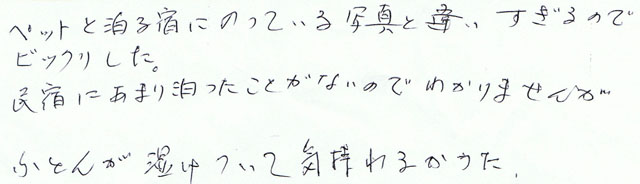 ペットと泊る宿にのっている写真と違いすぎるので
ビックリした。
民宿にあまり泊ったことがないのでわかりませんが
ふとんが湿けついて気持わるかった。